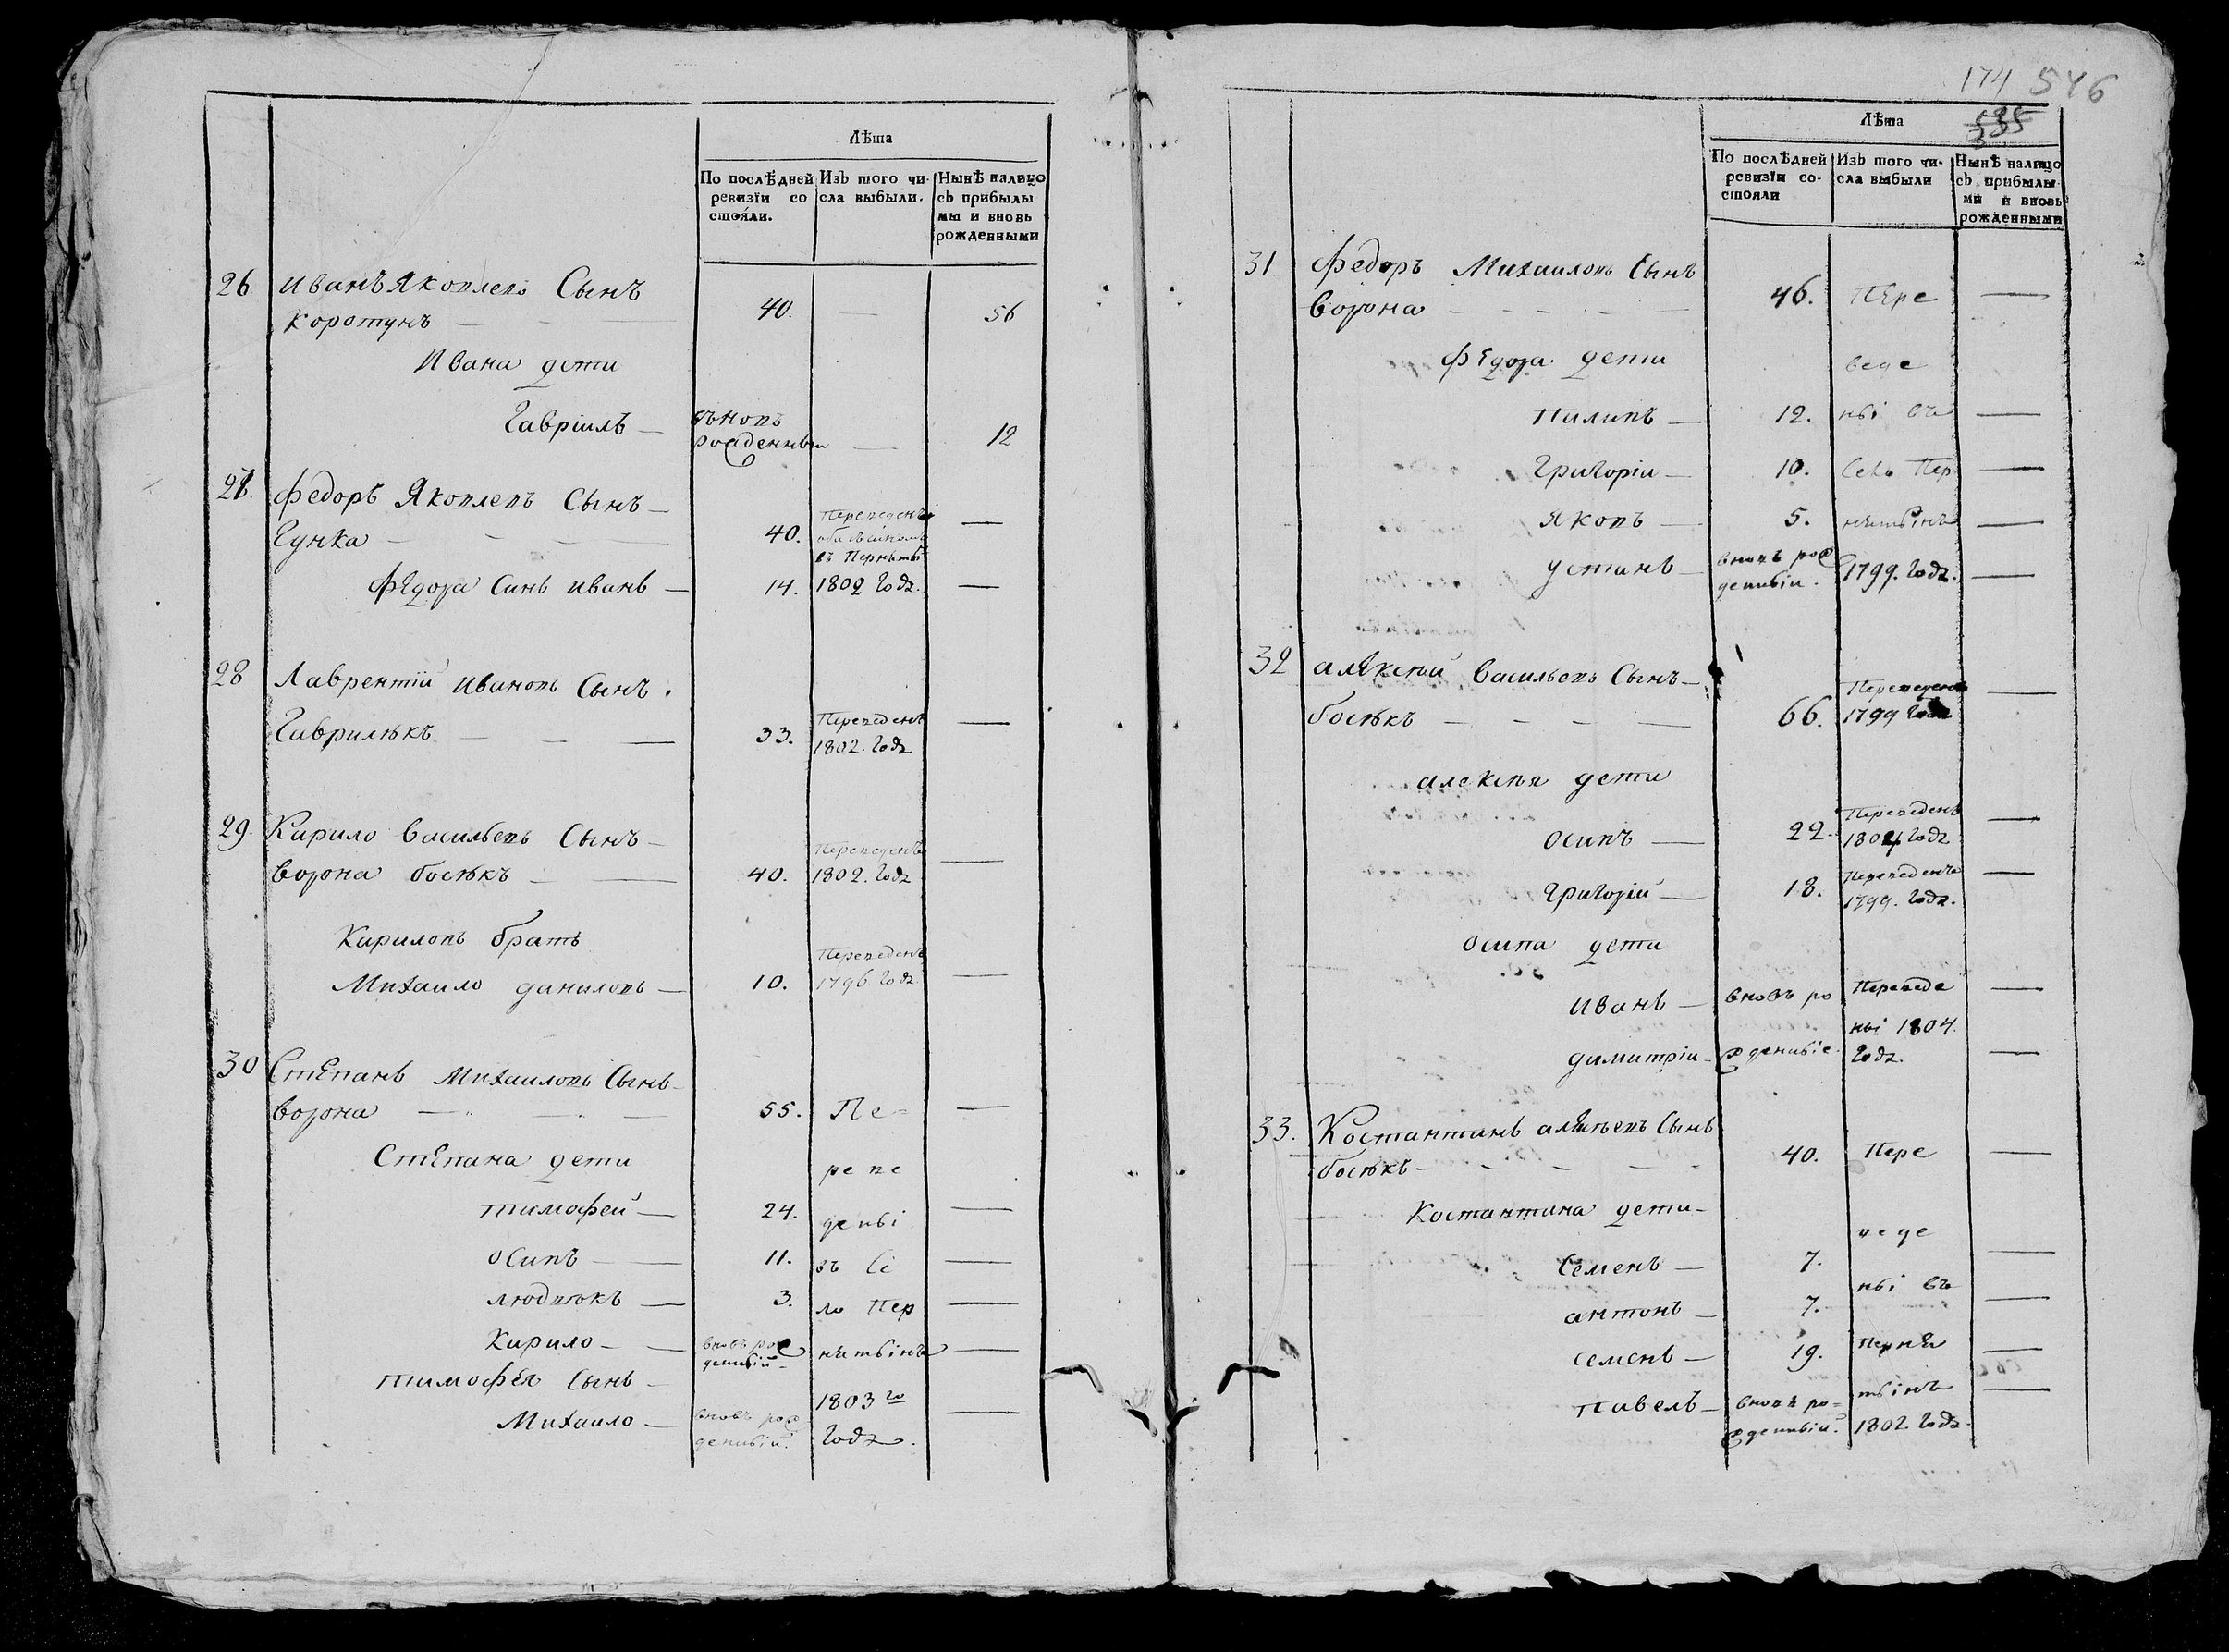 Лѣта
По послѣдней ревизїи со стояли.
Изъ того чи- сла выбыли.
Нынѣ налицо съ прибылы мы и вновь рожденными
26 Иванъ Яковлевъ Сынъ
Коротунъ — 40. — 56
Ивана дети
Гавріилъ — вновъ рожденный — 12
27 Федоръ Яковлевъ Сынъ —
Гунка — 40. Переведены оба съ сыномъ въ —
Федора Синъ иванъ — 14. 1802 годъ. —
28 Лаврентій ивановъ Сынъ.
Гаврилюкъ — 33. Переведенъ 1802. годъ —
29. Кирило васильевъ Сынъ —
ворона босякъ — 40. Переведенъ 1802. годъ —
Кириловъ братъ
Михаило даниловъ — 10. Переведенъ 1796. годъ —
30 Степанъ Михаиловъ Сынъ
ворона — 55. Пе- —
Степана дети ре ве
тимофей — 24. дены —
осипъ — 11. въ Се —
3. ло Пер —
Кирило — вновъ рожденный —
тимофея Сынъ — 1803 го
Михаило — вновъ рожденный. годъ. —
174 546
535
Лѣта
По послѣдней ревизїи со- стояли
Изъ того чи- сла выбыли
Нынѣ налицо съ прибылы- ми и вновь рожденными
31 Федоръ Михаиловъ Сынъ
ворона — 46. Пере —
Федора дети веде
Пилипъ — 12. ны въ —
Григоріи — 10. Село Пер —
Яковъ — 5. —
устинъ — вновъ рожденныи. 1799. годъ. —
32 алексѣй васильевъ Сынъ —
босякъ — 66. Переведенъ 1799 годъ —
алексѣя дети
осипъ — 22. Переведенъ 1804 годъ —
григорій — 18. Переведенъ 1799. годъ. —
осипа дети
иванъ — вновъ ро Переведе —
ны 1804.
димитріи — жденные годъ. —
33. Костантинъ Сынъ
босякъ — 40. Пере —
Костантина дети — веде
Семенъ — 7. —
антонъ — 7. ны въ —
семенъ — 19. —
павелъ — вновъ ро- —
жденныи. 1802. годъ.